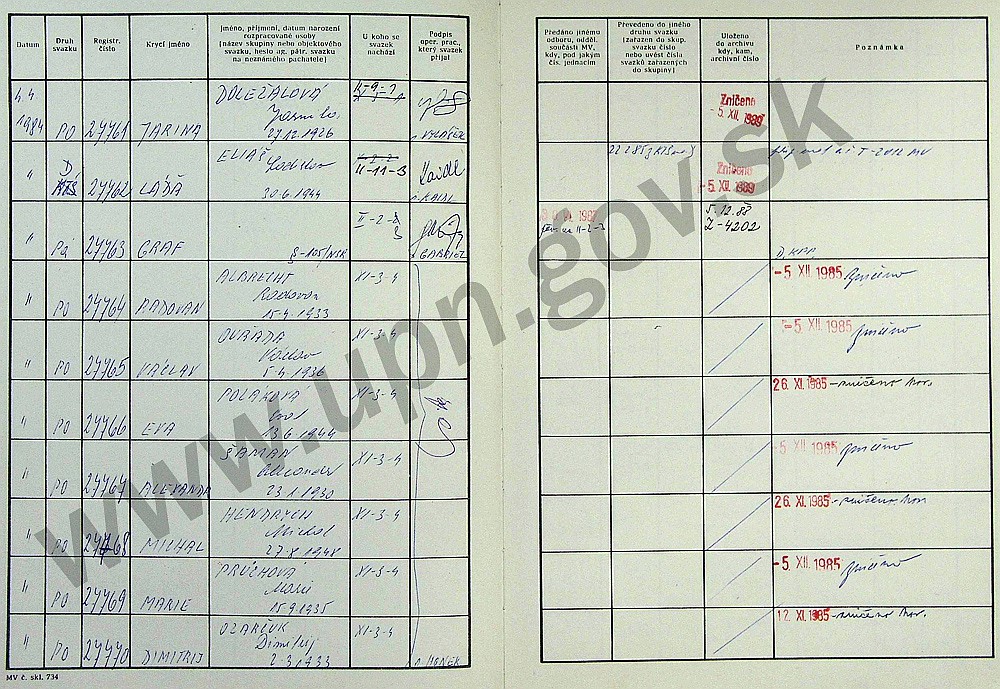 Datum
Druh svazku
Registr. číslo
Krycí jméno
Jméno, příjmení, datum narození rozpracované osoby (název skupiny nebo objektového svazku, heslo ag. pátr. svazku na neznámého pachatele)
U koho se svazek nachází
Podpis oper. prac., který svazek přijal
Předáno jinému odboru, odděl. součásti MV, kdy, pod jakým čís. jednacím
Převedeno do jiného druhu svazku (zařazen do skup. svazku číslo nebo uvést čísla svazků zařazených do skupiny)
Uloženo do archivu kdy, kam, archivní číslo
Poznámka
4.4 1984 PO 27761 JARINA DOLEŽALOVÁ Jarmila 27.12.1926
Zničeno
- 5. XII. 1989
" D 27762 LÁĎA ELIÁŠ Ladislav 30.6.1944 II-11-3 Kaidl
Zničeno
- 5. XII. 1989
" PO 27763 GRAF II-2-3 GABRIEL
5.12.88
Z-4202
" PO 27764 RADOVAN ALBRECHT Radovan 15.4.1933 XI-3-4
- 5. XII. 1985 zničeno
" PO 27765 VÁCLAV OURADA Václav 5.4.1936 XI-3-4
- 5. XII. 1985 zničeno
" PO 27766 EVA POLÁKOVÁ Eva 13.6.1944 XI-3-4
26. XI. 1985 - zničeno
" PO 27767 ALEXANDR ŠAMAN Alexander 23.1.1930 XI-3-4
- 5. XII. 1985 zničeno
" PO 27768 MICHAL HENDRYCH Michal 27.8.1948 XI-3-4
26. XI. 1985 - zničeno
" PO 27769 MARIE PRŮCHOVÁ Marie 15.9.1935 XI-3-4
- 5. XII. 1985 zničeno
" PO 27770 DIMITRIJ OZARČUK Dimitrij 2.3.1933 XI-3-4
12. XI. 1985 - zničeno
MV č. skl. 734
www.upn.gov.sk